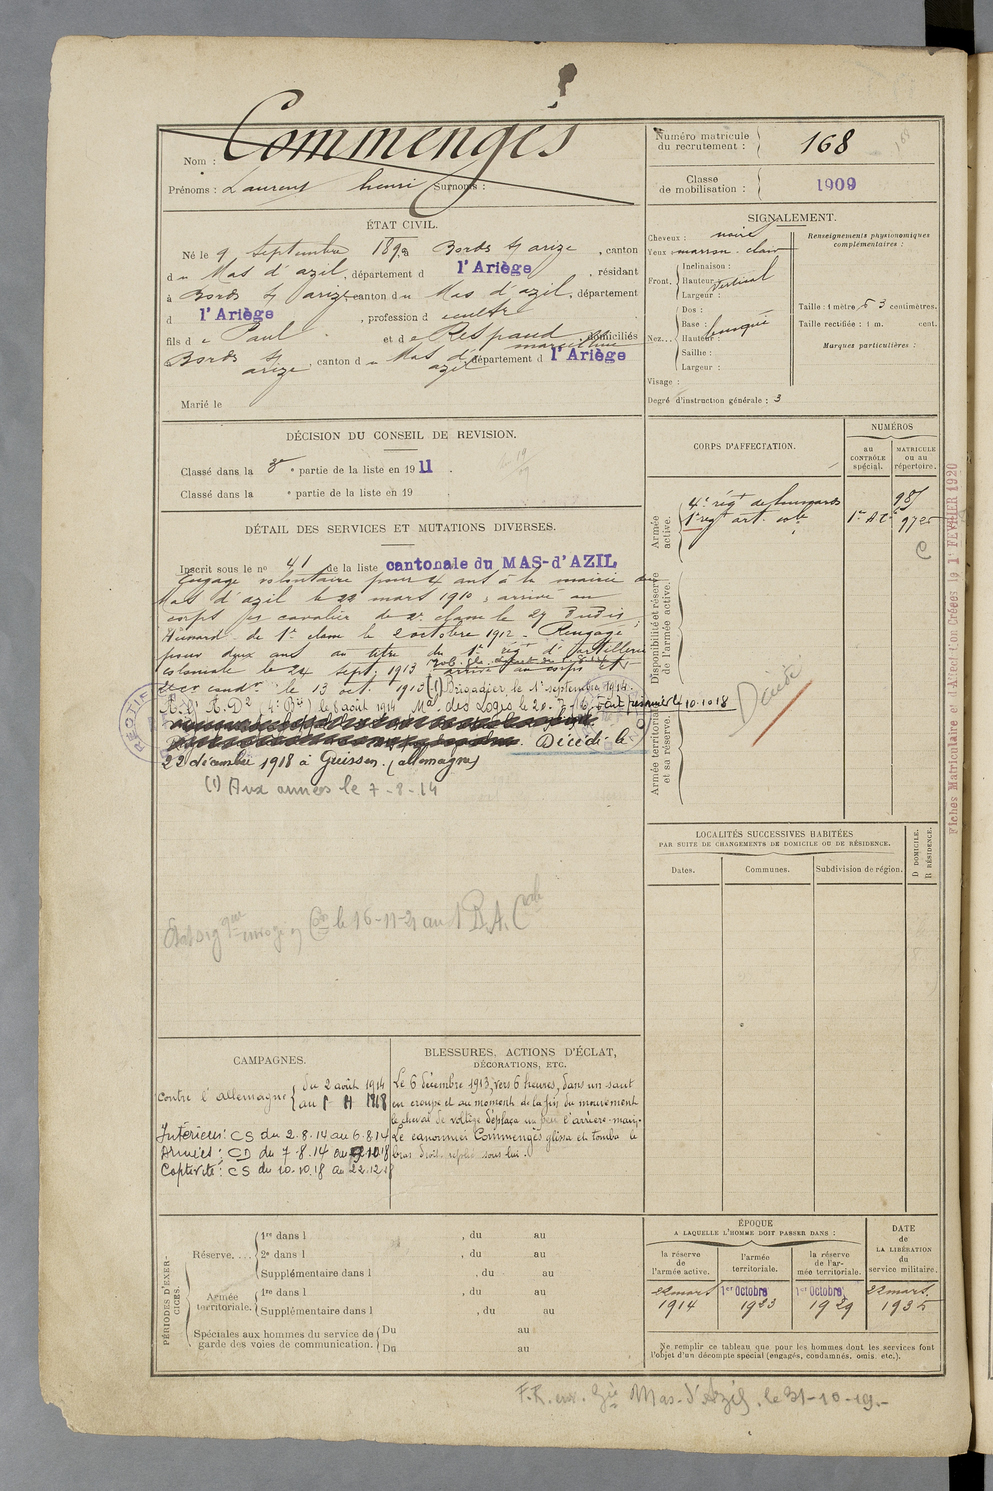 Nom : Commengès
Prénoms : Laurent henri Surnoms :
Numéro matricule du recrutement : 168
Classe de mobilisation : 1909
ÉTAT CIVIL.
Né le 9 Septembre 189 , à Bords s/ arize , canton
du Mas d'azil, département d l'Ariège , résidant
à Bords s/ arize canton du Mas d'azil, département
d l'Ariège , profession d
fils de Paul et de Respaud domiciliés
Bords s/ arize , canton du Mas d'azil département d l'Ariège
Marié le
SIGNALEMENT.
Cheveux : noirs
Yeux marron clair
Front. Inclinaison :
Hauteur : Vertical
Largeur :
Nez... Dos :
Base : busqué
Hauteur :
Saillie :
Largeur :
Visage :
Degré d'instruction générale : 3
Renseignements physionomiques complémentaires :
Taille : 1 mètre 63 centimètres.
Taille rectifiée : 1 m. cent.
Marques particulières :
DÉCISION DU CONSEIL DE REVISION.
Classé dans la 3e partie de la liste en 1911 .
Classé dans la e partie de la liste en 19 .
DÉTAIL DES SERVICES ET MUTATIONS DIVERSES.
Inscrit sous le no 41 de la liste cantonale du MAS-d'AZIL
Engagé volontaire pour 4 ans à la mairie du
Mas d'azil le 22 mars 1910, arrivé au
corps et cavalier de 2e classe le 29 dudit,
Hussard de 1re classe le 2 octobre 1912. Rengagé
pour deux ans au titre du 1er régt d'artillerie
coloniale le 24 sept. 1913 arrivé au corps et
2e cer condr le 13 oct. 1913 (1) Brigadier le 1er septembre 1914.
le 8 août 1914 Mal des Logis le 20-7-16, fait prisonnier le 10.10.18
Décédé le
22 décembre 1918 à Giessen (allemagne)
(1) Aux armées le 7-8-14
le 16-11-21 au
CORPS D'AFFECTATION.
NUMÉROS
au CONTRÔLE spécial.
MATRICULE ou au répertoire.
Armée active.
4e régt de hussards 985
1er régt art. cole 1er A C 9725
C
Disponibilité et réserve de l'armée active.
Armée territoriale et sa réserve.
Décédé
Fiches Matriculaire et d'Affectation Créées le 1er FEVRIER 1920
LOCALITÉS SUCCESSIVES HABITÉES
PAR SUITE DE CHANGEMENTS DE DOMICILE OU DE RÉSIDENCE.
Dates.
Communes.
Subdivision de région.
D DOMICILE.
R RÉSIDENCE.
CAMPAGNES.
Contre l'allemagne du 2 août 1914
au
Intérieur : CS du 2.8.14 au 6.8.14
Armées : CD du 7-8.14 au 9.10.18
Captivité : CS du 10.10.18 au 22.12.18
BLESSURES, ACTIONS D'ÉCLAT,
DÉCORATIONS, ETC.
Le 6 décembre 1913, vers 6 heures, dans un saut
en croupe et au moment de la fin du mouvement
le cheval de voltige déplaça un peu l'arrière-main.
Le canonnier Commengès glissa et tomba le
bras droit replié sous lui.
PÉRIODES D'EXERCICES.
Réserve....
1re dans l , du au
2e dans l , du au
Supplémentaire dans l , du au
Armée territoriale.
1re dans l , du au
Supplémentaire dans l , du au
Spéciales aux hommes du service de garde des voies de communication.
Du au
Du au
ÉPOQUE
A LAQUELLE L'HOMME DOIT PASSER DANS :
la réserve de l'armée active.
l'armée territoriale.
la réserve de l'armée territoriale.
DATE de LA LIBÉRATION du service militaire.
22 mars 1914
1er Octobre 1923
1er Octobre 1929
22 mars 1935
Ne remplir ce tableau que pour les hommes dont les services font
l'objet d'un décompte spécial (engagés, condamnés, omis, etc.).
Mas-d'Azil. le 31-10-19.-